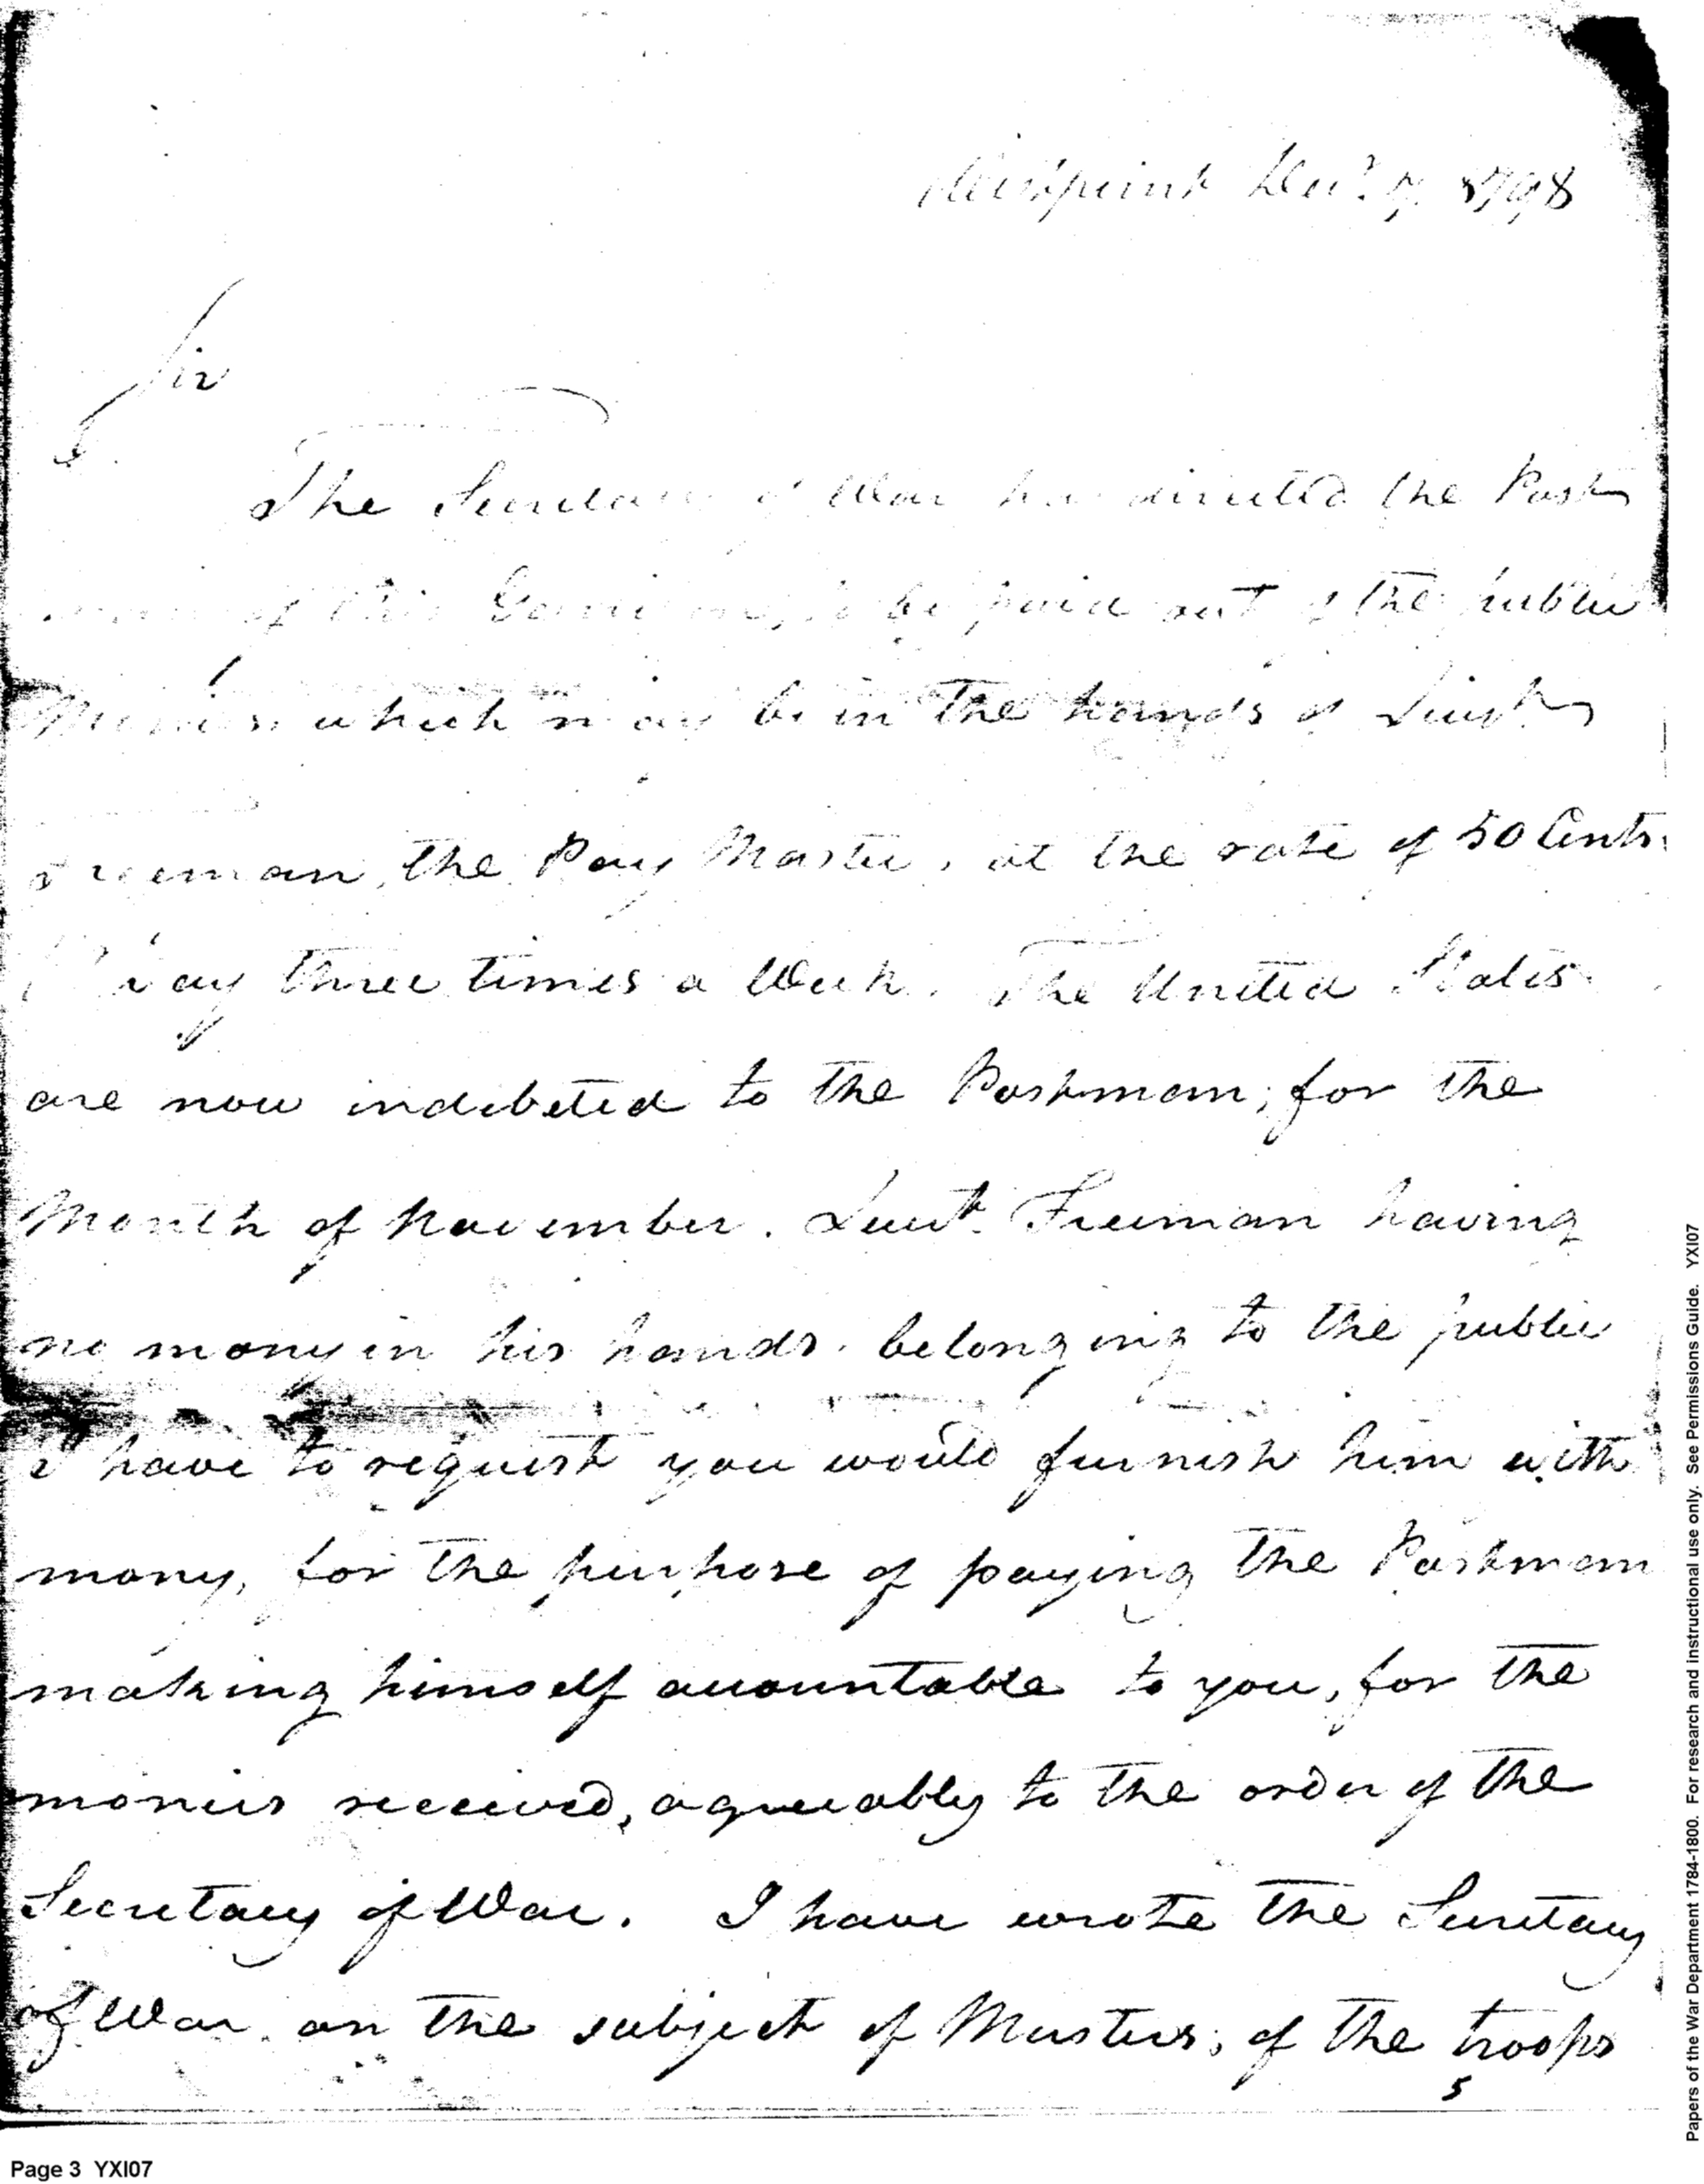 Westpoint Decr. 7. 1798
Sir
The Secretary of War has directed the Post
man of this Garrison, to be paid out of the public
Monies which may be in the hands of Lieut
Freeman, the Pay Master, at the rate of 50 Cents
day three times a Week. The United States
are now indebeted to the Postman; for the
Month of November. Lieut. Freeman having
no mony in his hands belonging to the public
I have to request you would furnish him with
mony, for the purpose of paying the Postman
making himself accountable to you, for the
monies received, agreeably to the order of the
Secretary of War. I have wrote the Secretary
of War on the subject of Musters, of the troops
5
Page 3 YXI07
Papers of the War Department 1784-1800. For research and instructional use only. See Permissions Guide. YXI07